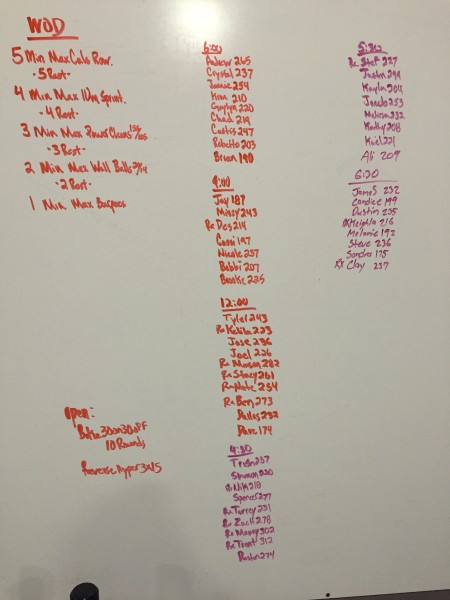 WOD
5 Min Max Cals Row.
-5 Rest-
4 Min Max 10m Sprint.
-4 Rest-
3 Min Max Power Cleans 135/105
-3 Rest-
2 Min Max Wall Balls 20/14
-2 Rest-
1 Min Max Burpees
Open:
30on30off
10 Rounds
Reverse Hyper 3x15
6:00
Andrew 265
Crystal 237
Jamie 254
Kim 210
220
Chad 219
Curtis 247
Roberto 203
Brian 190
9:00
Jay 187
Missy 243
Rx Des 214
Cassi 197
Nicole 237
Bobbi 207
Brooke 225
12:00
Tyler 243
Rx Kalila 223
Jose 236
Joel 226
Rx Mason 282
Rx Stacy 261
Rx Nate 234
Rx Ben 273
Dallas 232
Dave 174
4:30
Trish 237
Shannon 220
Rx Nik 218
Spencer 277
Rx Torrey 231
Rx Zach 278
Rx 302
Rx Trent 312
Dustin 274
5:30
Rx Stef 227
Justin 244
Kayla 204
253
Melissa 232
Kathy 208
221
Ali 209
6:30
James 232
Candice 199
Dustin 235
Rx Keighla 216
Melanie 192
Steve 236
Sandra 175
Rx Clay 237